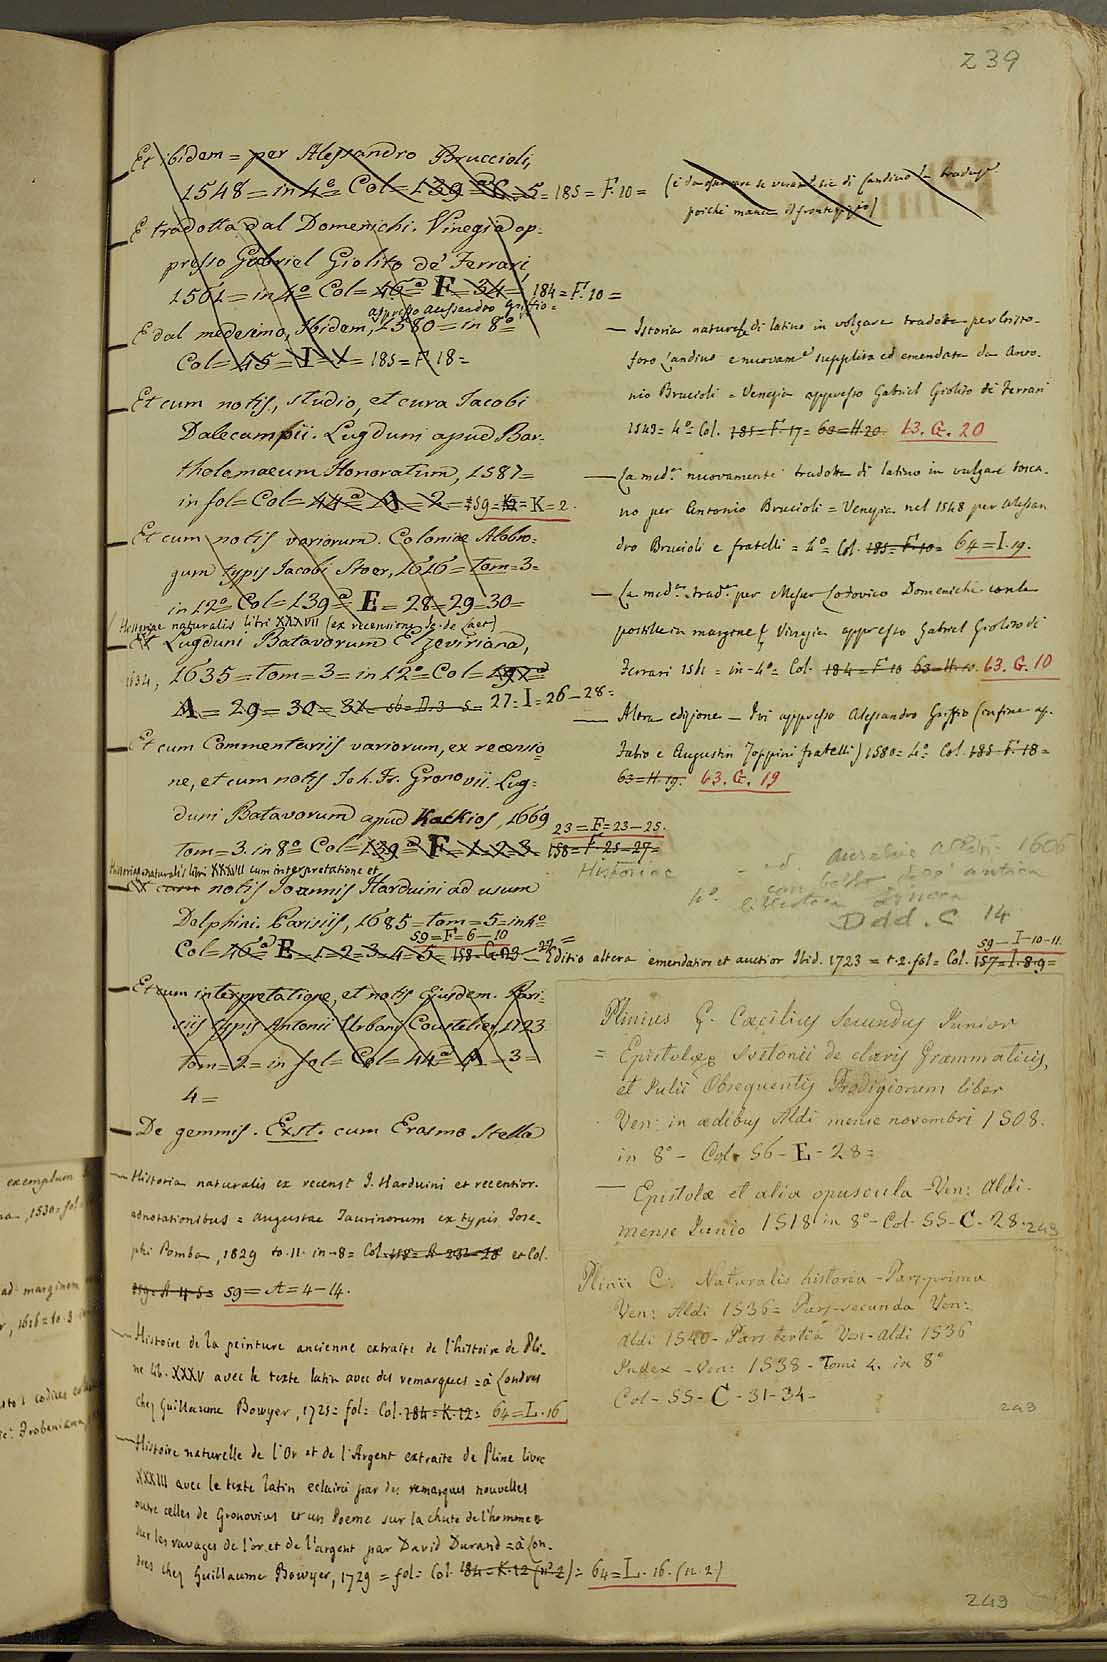 239
Et ibidem = per Alessandro Bruccioli,
1548 = in 4º Col = 139 = C. 5 = 185 = F. 10 =
E tradotta dal Domenichi. Vinegia ap-
presso Gabriel Giolito de' Ferrari,
1561 = in 4º Col = F = 34 = 184 = F. 10 =
appresso Alessandro Griffio =
E dal medesimo, Ibidem, 1580 = in 8º
Col = 45 = I = 1 = 185 = F. 18 =
Et cum notis, studio, et cura Jacobi
Dalecampii. Lugduni apud Bar-
tholomaeum Honoratum, 1587 =
in fol = Col = 44ª A = 2 = 59 = K = 2.
Et cum notis variorum. Coloniae Allobro-
gum typis Jacobi Stoer, 1616 = tom = 3 =
in 12º Col = 139 = E = 28 = 29 = 30 =
Historiae naturalis libri XXXVII (ex recensione J. de Laet)
Et Lugduni Batavorum Elzeviriana,
1634, 1635 = tom = 3 = in 12º = Col =
A = 29 = 30 = 3X = 56 = D. 3 - 5 = 27 = I = 26 - 28 =
Et cum Commentariis variorum, ex recensio
ne, et cum notis Joh. Fr. Gronovii. Lug-
duni Batavorum apud Hackios, 1669
tom = 3. in 8º Col = 139 = F = 1 = 2 = 3 = 158 = F. 25 - 27 =
23 = E = 23 - 25.
Historiae naturalis libri XXXVII cum interpretatione et
notis Joannis Harduini ad usum
Delphini. Parisiis, 1685 = tom = 5 = in 4º
59 = F = 6 - 10
Col = 40ª E = 1 = 2 = 3 = 4 = 5 =
Et cum interpretatione, et notis Ejusdem. Pari-
siis typis Antonii Urbani Coustelier, 1723
tom = 2 = in fol = Col = 44ª A = 3 =
4 =
De gemmis. Exst. cum Erasmo Stella
Historia naturalis ex recens. J. Harduini et recentior.
adnotationibus = Augustae Taurinorum ex typis Jose-
phi Pomba, 1829 to. 11. in - 8 = Col. et Col.
59 = A = 4 - 14.
Histoire de la peinture ancienne extraite de l'histoire de Pli-
ne lib. XXXV avec le texte latin avec des remarques = à Londres
chez Guillaume Bowyer, 1725 = fol = Col. 184 = K. 12 = 64 = L. 16
Histoire naturelle de l'Or et de l'Argent extraite de Pline livre
XXXIII avec le texte latin eclairci par des remarques nouvelles
outre celles de Gronovius et un Poeme sur la chute de l'homme &
sur les ravages de l'or et de l'argent par David Durand = à Lon-
dres chez Guillaume Bowyer, 1729 = fol = Col. 184 = K. 12 (nº 2) = 64 = L. 16. (n. 2)
poichè manca il frontespizio)
Istoria naturale di latino in volgare tradotta per Cristo-
foro Landino e nuovam.e supplita ed emendata da Anto-
nio Brucioli = Venezia appresso Gabriel Giolito di Ferrari
1543 = 4º = Col. 185 = F. 17 = 63 = H. 20. 63. G. 20
La med.ª nuovamente tradotta di latino in vulgare tosca-
no per Antonio Brucioli = Venezia nel 1548 per Alessan
dro Brucioli e fratelli = 4º = Col. 185 = F. 10 = 64 = I. 19.
La med.ª trad.ª per Messer Lodovico Domenichi con le
postille in margine &. Vinegia appresso Gabriel Giolito di
Ferrari 1561 = in - 4º = Col. 184 = F. 10 63 = H. 10. 63. G. 10
Altra edizione - Ivi appresso Alessandro Griffio (infine ap.
Fabio e Augustin Zoppini fratelli) 1580 = 4º = Col. 185 = F. 18 =
63 = H. 19. 63. G. 19
Historiae
1606
4º. antica
Ddd. C 14
59 - I - 10 - 11.
Editio altera emendatior et auctior Ibid. 1723 = t. 2. fol = Col. 157 = I. 8. 9 =
Plinius C. Cæcilius Secundus Junior
= Epistolæ Svetonii de claris Grammaticis,
et Julii Obsequentis Prodigiorum liber
Ven: in ædibus Aldi mense novembri 1508.
in 8º - Col. 56 - E - 28 =
Epistolæ et alia opuscula - Ven: Aldi -
mense Junio 1518 in 8º - Col - 55 - C - 28. 243
Plinii C. Naturalis historia - Pars prima
Ven: Aldi 1536 = Pars - secunda Ven:
Aldi 1540 - Pars tertia Ven - Aldi 1536
Index - Ven: 1538 - Tomi 4. in 8º
Col - 55 - C - 31 - 34 -
243
243
exemplum
, 1530 = fol
ad marginem
, 1616 = to. 3
codices
Frobeniana